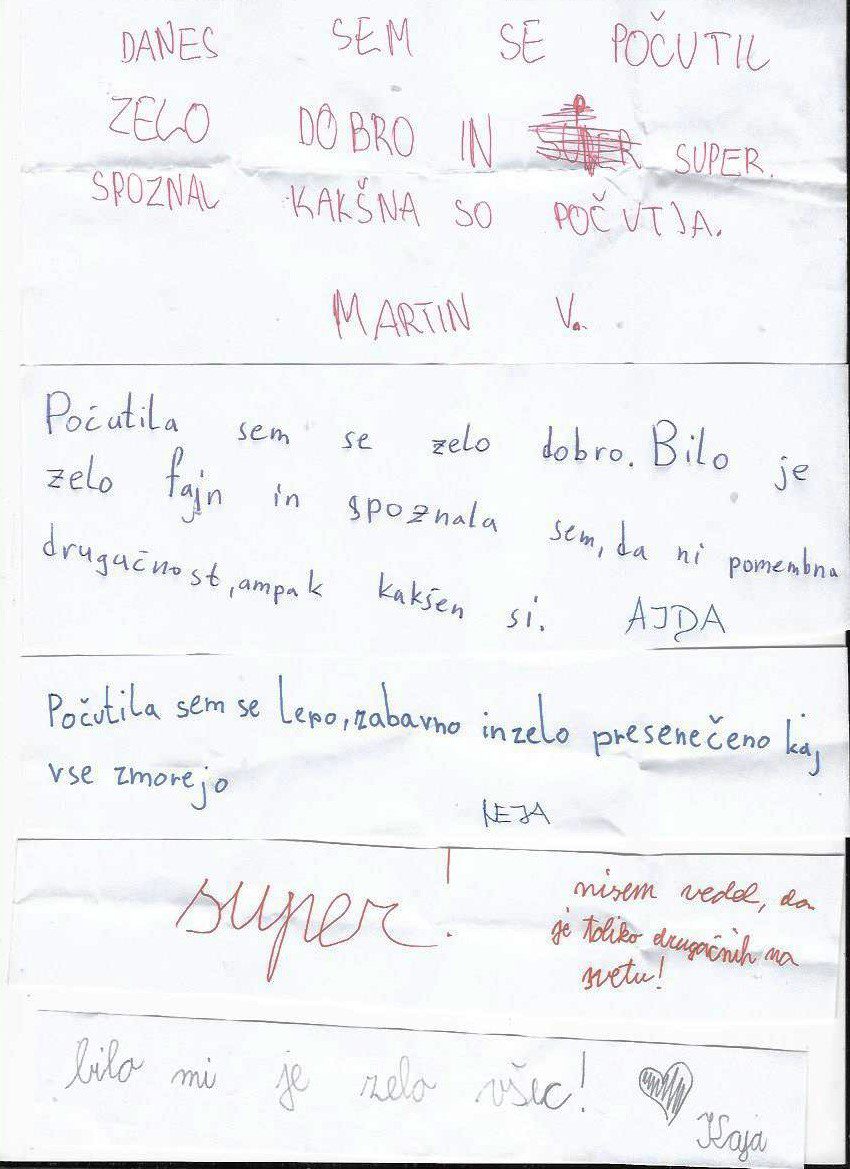 DANES SEM SE POČUTIL
ZELO DOBRO IN SUPER SUPER.
SPOZNAL KAKŠNA SO POČUTJA.
MARTIN V.
Počutila sem se zelo dobro. Bilo je
zelo fajn in spoznala sem, da ni pomembna
drugačnost, ampak kakšen si. AJDA
Počutila sem se lepo, zabavno in zelo presenečeno kaj
vse zmorejo
NEJA
super!
nisem vedel, da
je toliko drugačnih na
svetu!
bilo mi je zelo všeč!
Kaja